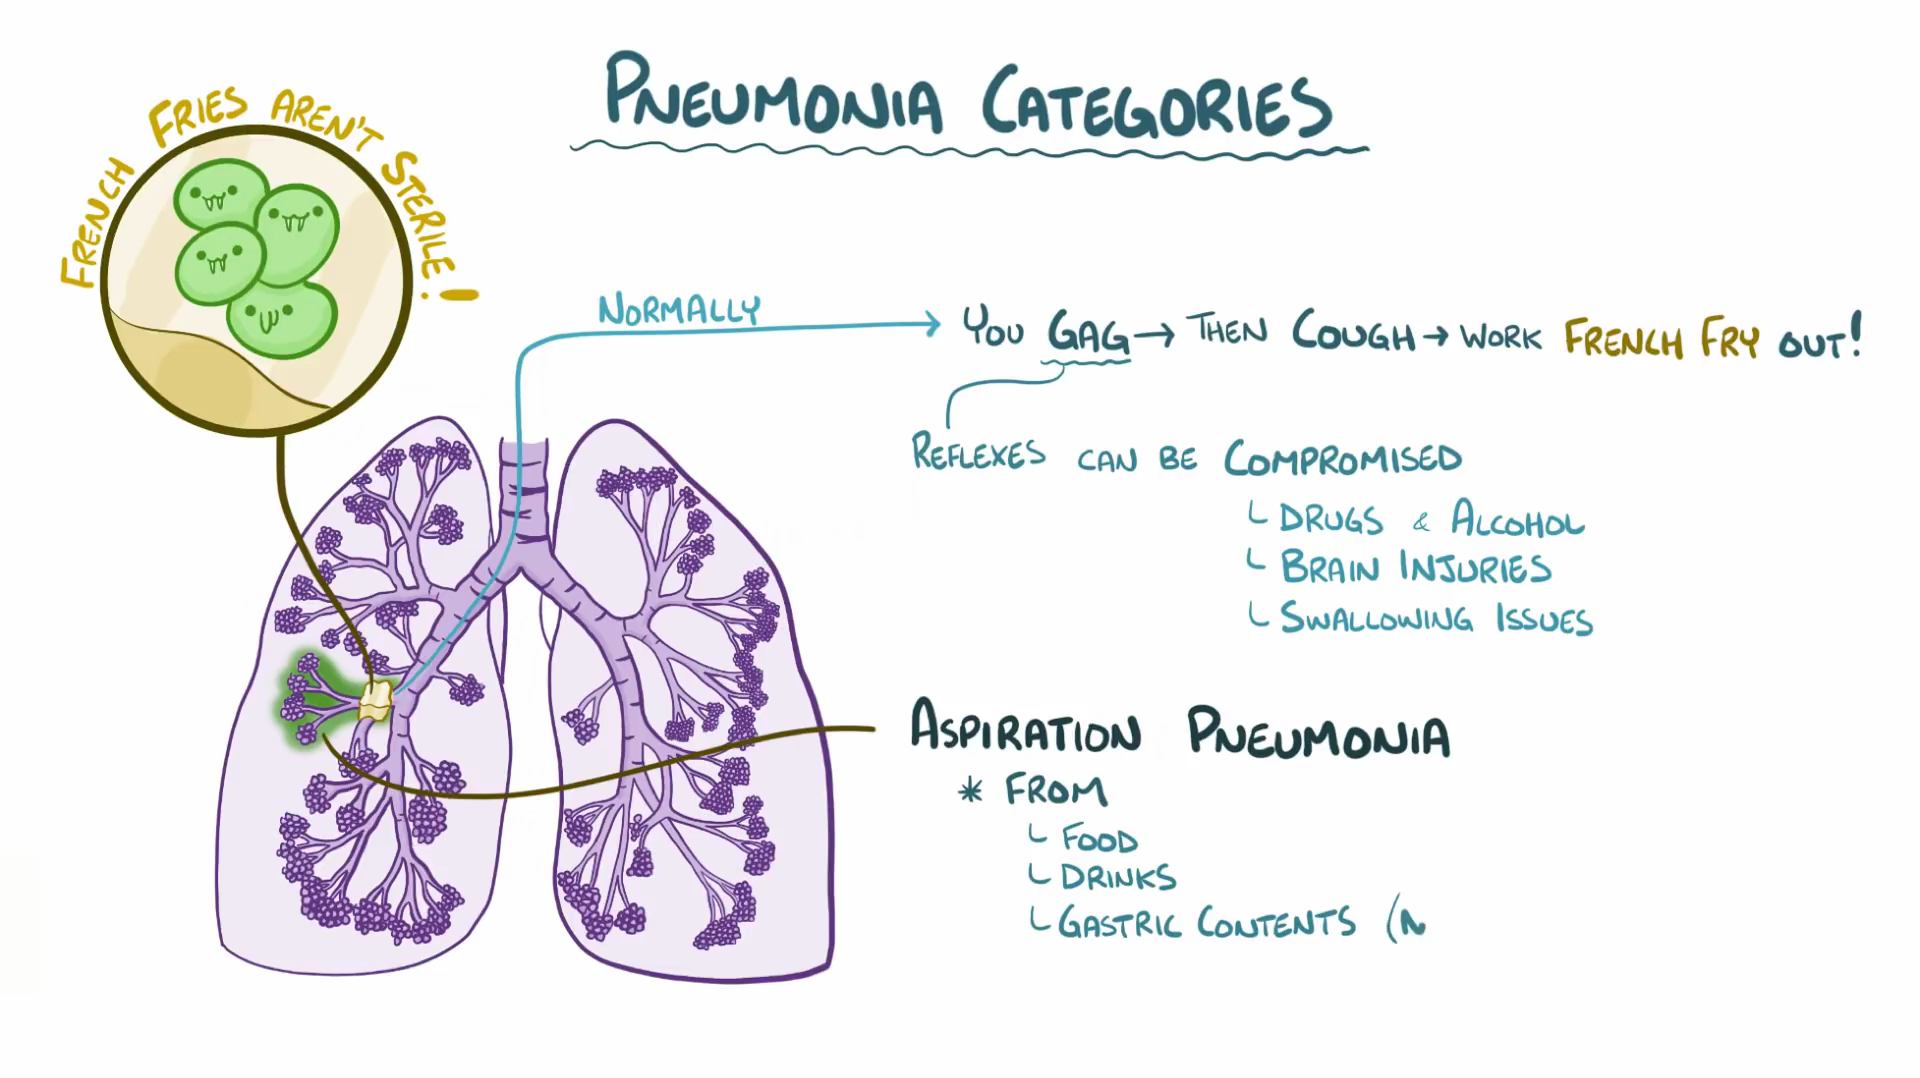 PNEUMONIA CATEGORIES
FRENCH FRIES AREN'T STERILE!
NORMALLY
YOU GAG → THEN COUGH → WORK FRENCH FRY OUT!
REFLEXES CAN BE COMPROMISED
DRUGS & ALCOHOL
BRAIN INJURIES
SWALLOWING ISSUES
ASPIRATION PNEUMONIA
* FROM
FOOD
DRINKS
GASTRIC CONTENTS (